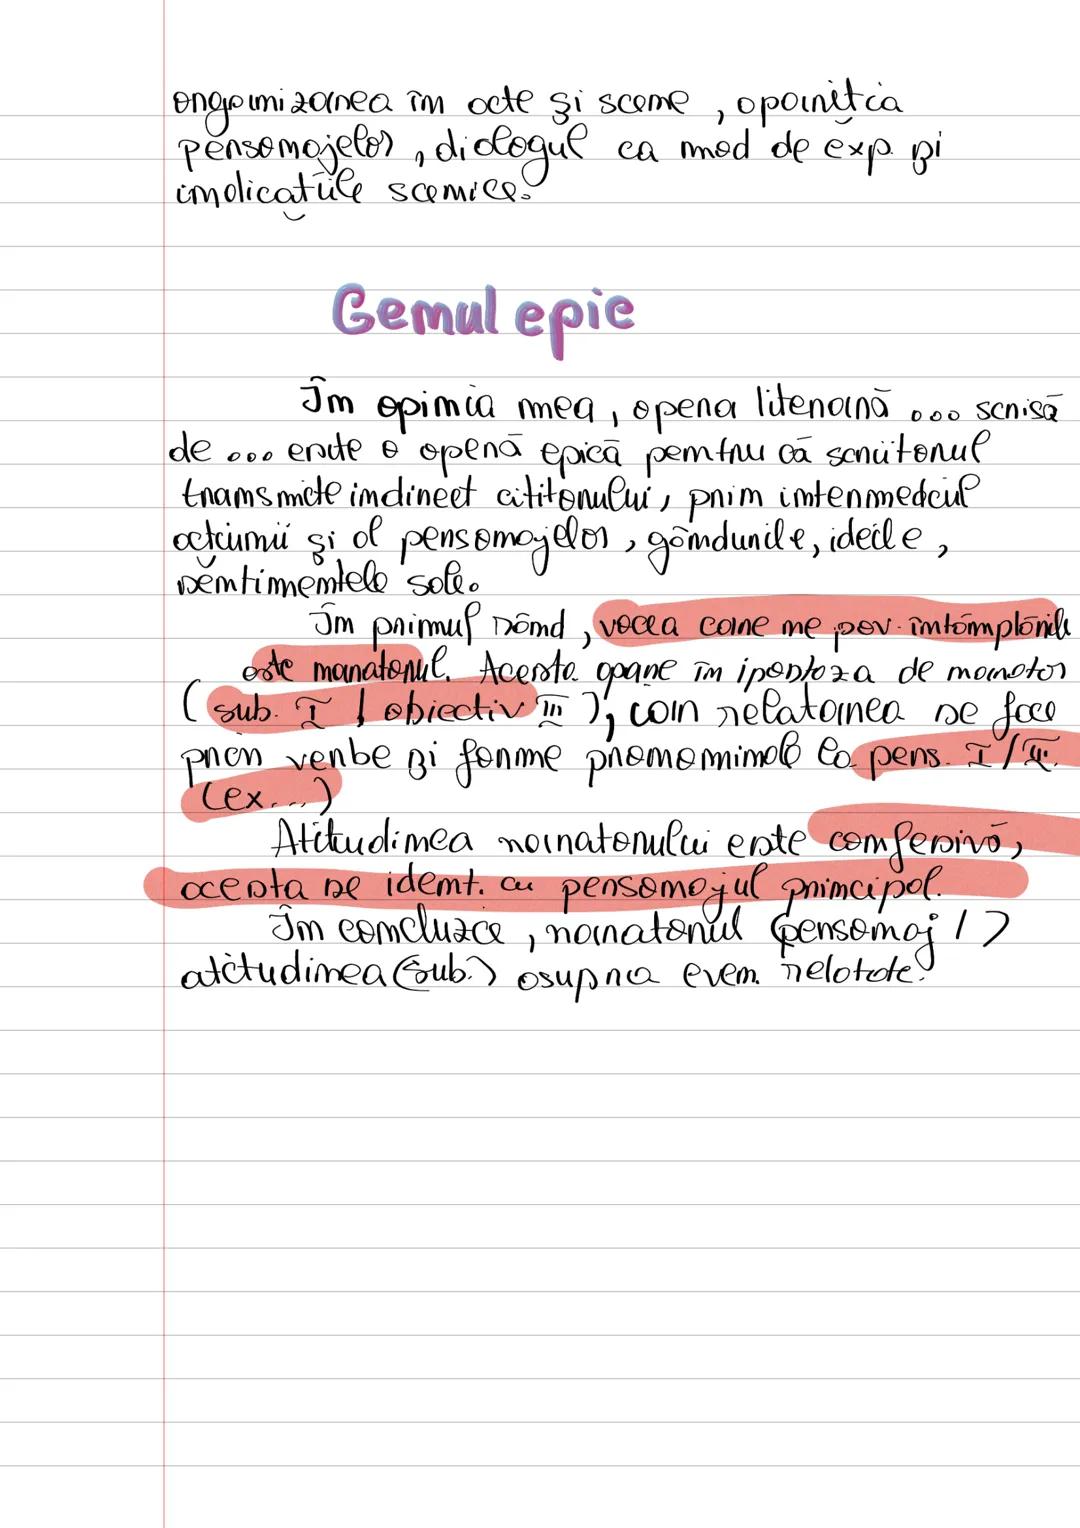 organizarea în acte și scene, apariția
personajelor, dialogul ca mod de exp. și
indicațiile scenice.
Genul epic
În opinia mea, opera literară ... scrisă
de ... este o operă epică pentru că scriitorul
transmite indirect cititorului, prin intermediul
acțiunii și al personajelor, gândurile, ideile,
sentimentele sale.
În primul rând, vocea care ne pov. întâmplările
este naratorul. Acesta apare în ipostaza de narator
(sub. I / obiectiv III), iar relatarea se face
prin verbe și forme pronominale la pers. I / III.
(ex...)
Atitudinea naratorului este confesivă,
acesta se ident. cu personajul principal.
În concluzie, naratorul (personaj / )
atitudinea (sub.) asupra even. relatate.